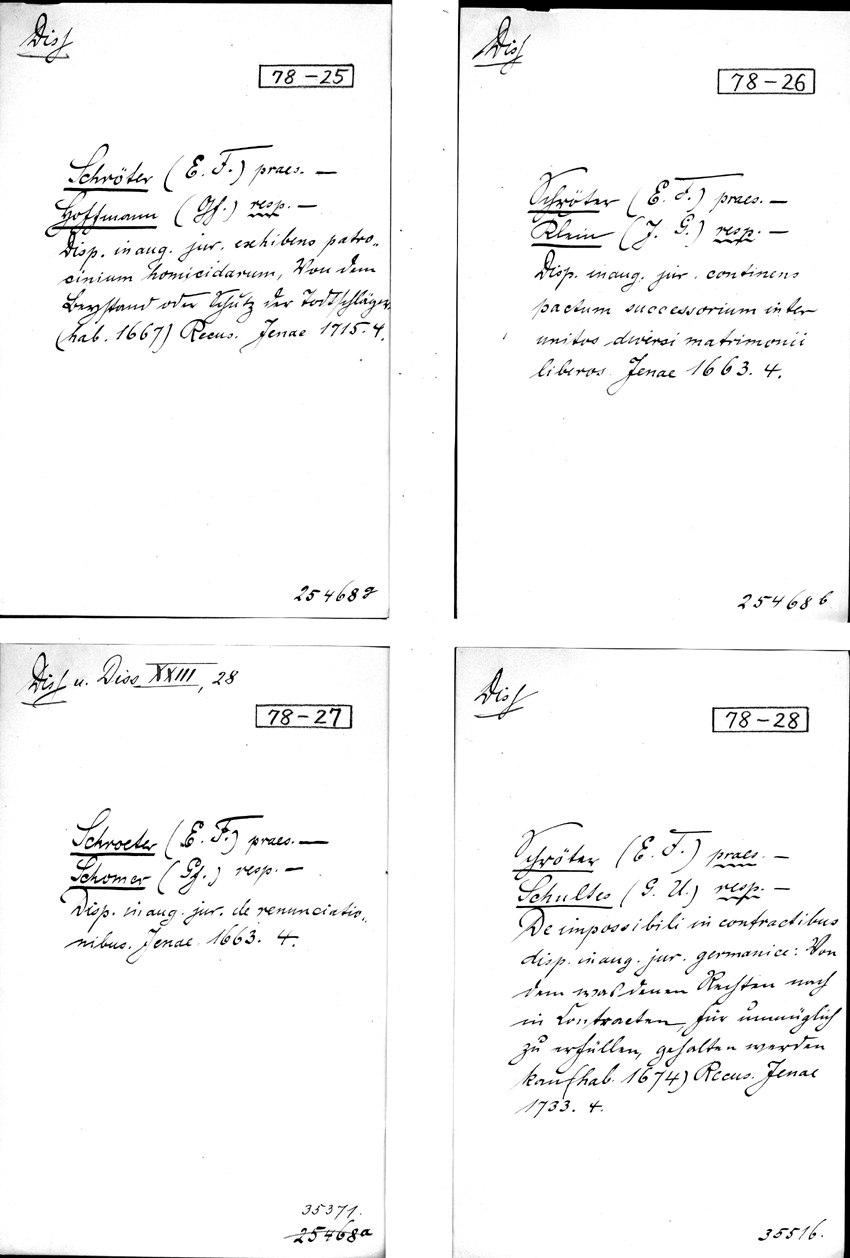 Diss
78-25
Schröter (E. F.) praes. —
Hoffmann (Gf.) resp. —
Disp. inaug. jur. exhibens patro-
cinium homicidarum, Von dem
Beystand oder Schutz der Todtschläger.
(hab. 1667) Recus. Jenae 1715. 4.
25468g
Diss
78-26
Schröter (E. F.) praes. —
Klein (J. G.) resp. —
Disp. inaug. jur. continens
pactum successorium inter
unitos diversi matrimonii
liberos. Jenae 1663. 4.
25468b
Diss u. Diss XXIII, 28
78-27
Schroeter (E. F.) praes. —
Schomer (Gf.) resp. —
Disp. inaug. jur. de renunciatio-
nibus. Jenae 1663. 4.
35371.
25468a
Diss
78-28
Schröter (E. F.) praes. —
Schultes (G. U.) resp. —
De impossibili in contractibus
disp. inaug. jur. germanice: Von
dem was denen Rechten nach
in Contracten, für unmüglich
zu erfüllen, gehalten werden
kan (hab. 1674) Recus. Jenae
1733. 4.
35516.